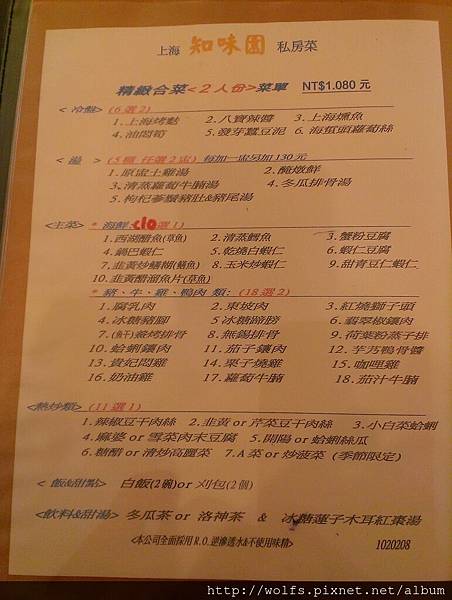 上海 知味園 私房菜
精緻合菜<2人份>菜單 NT$1.080 元
< 冷盤> (6選2)
1.上海烤麩 2.八寶辣醬 3.上海燻魚
4.油悶筍 5.發芽蠶豆泥 6.海蜇頭蘿蔔絲
< 湯 > (5種,任選2盅) 每加一盅另加130元
1.原盅土雞湯 2.醃燉鮮
3.清蒸蘿蔔牛腩湯 4.冬瓜排骨湯
5.枸杞蔘鬚豬肚&豬尾湯
<主菜> * 海鮮:<10選1)
1.西湖醋魚(草魚) 2.清蒸鱈魚 3.蟹粉豆腐
4.鍋巴蝦仁 5.乾燒白蝦仁 6.蝦仁豆腐
7.韭黃炒鱔糊(鱔魚) 8.玉米炒蝦仁 9.甜青豆仁蝦仁
10.韭黃醋溜魚片(草魚)
* 豬、牛、雞、鴨肉 類: (18選2)
1.腐乳肉 2.東坡肉 3.紅燒獅子頭
4.冰糖豬腳 5.冰糖蹄膀 6.翡翠椒鑲肉
7.(軒)蔹烤排骨 8.無錫排骨 9.荷葉粉蒸子排
10.蛤蜊鑲肉 11.茄子鑲肉 12.芋乃鴨骨醬
13.貴妃悶雞 14.栗子燒雞 15.咖哩雞
16.奶油雞 17.蘿蔔牛腩 18.茄汁牛腩
<熱炒類> (11選1)
1.辣椒豆干肉絲 2.韭黃 or 芹菜豆干肉絲 3.小白菜蛤蜊
4.麻婆 or 雪菜肉末豆腐 5.開陽 or 蛤蜊絲瓜
6.糖醋 or 清炒高麗菜 7.A菜 or 炒菠菜 (季節限定)
< 飯&甜點> 白飯(2碗)or 刈包(2個)
<飲料&甜湯> 冬瓜茶 or 洛神茶 & 冰糖蓮子木耳紅棗湯
<本公司全面採用R.O.逆滲透水&不使用味精> 1020208
http://wolfs.pixnet.net/album